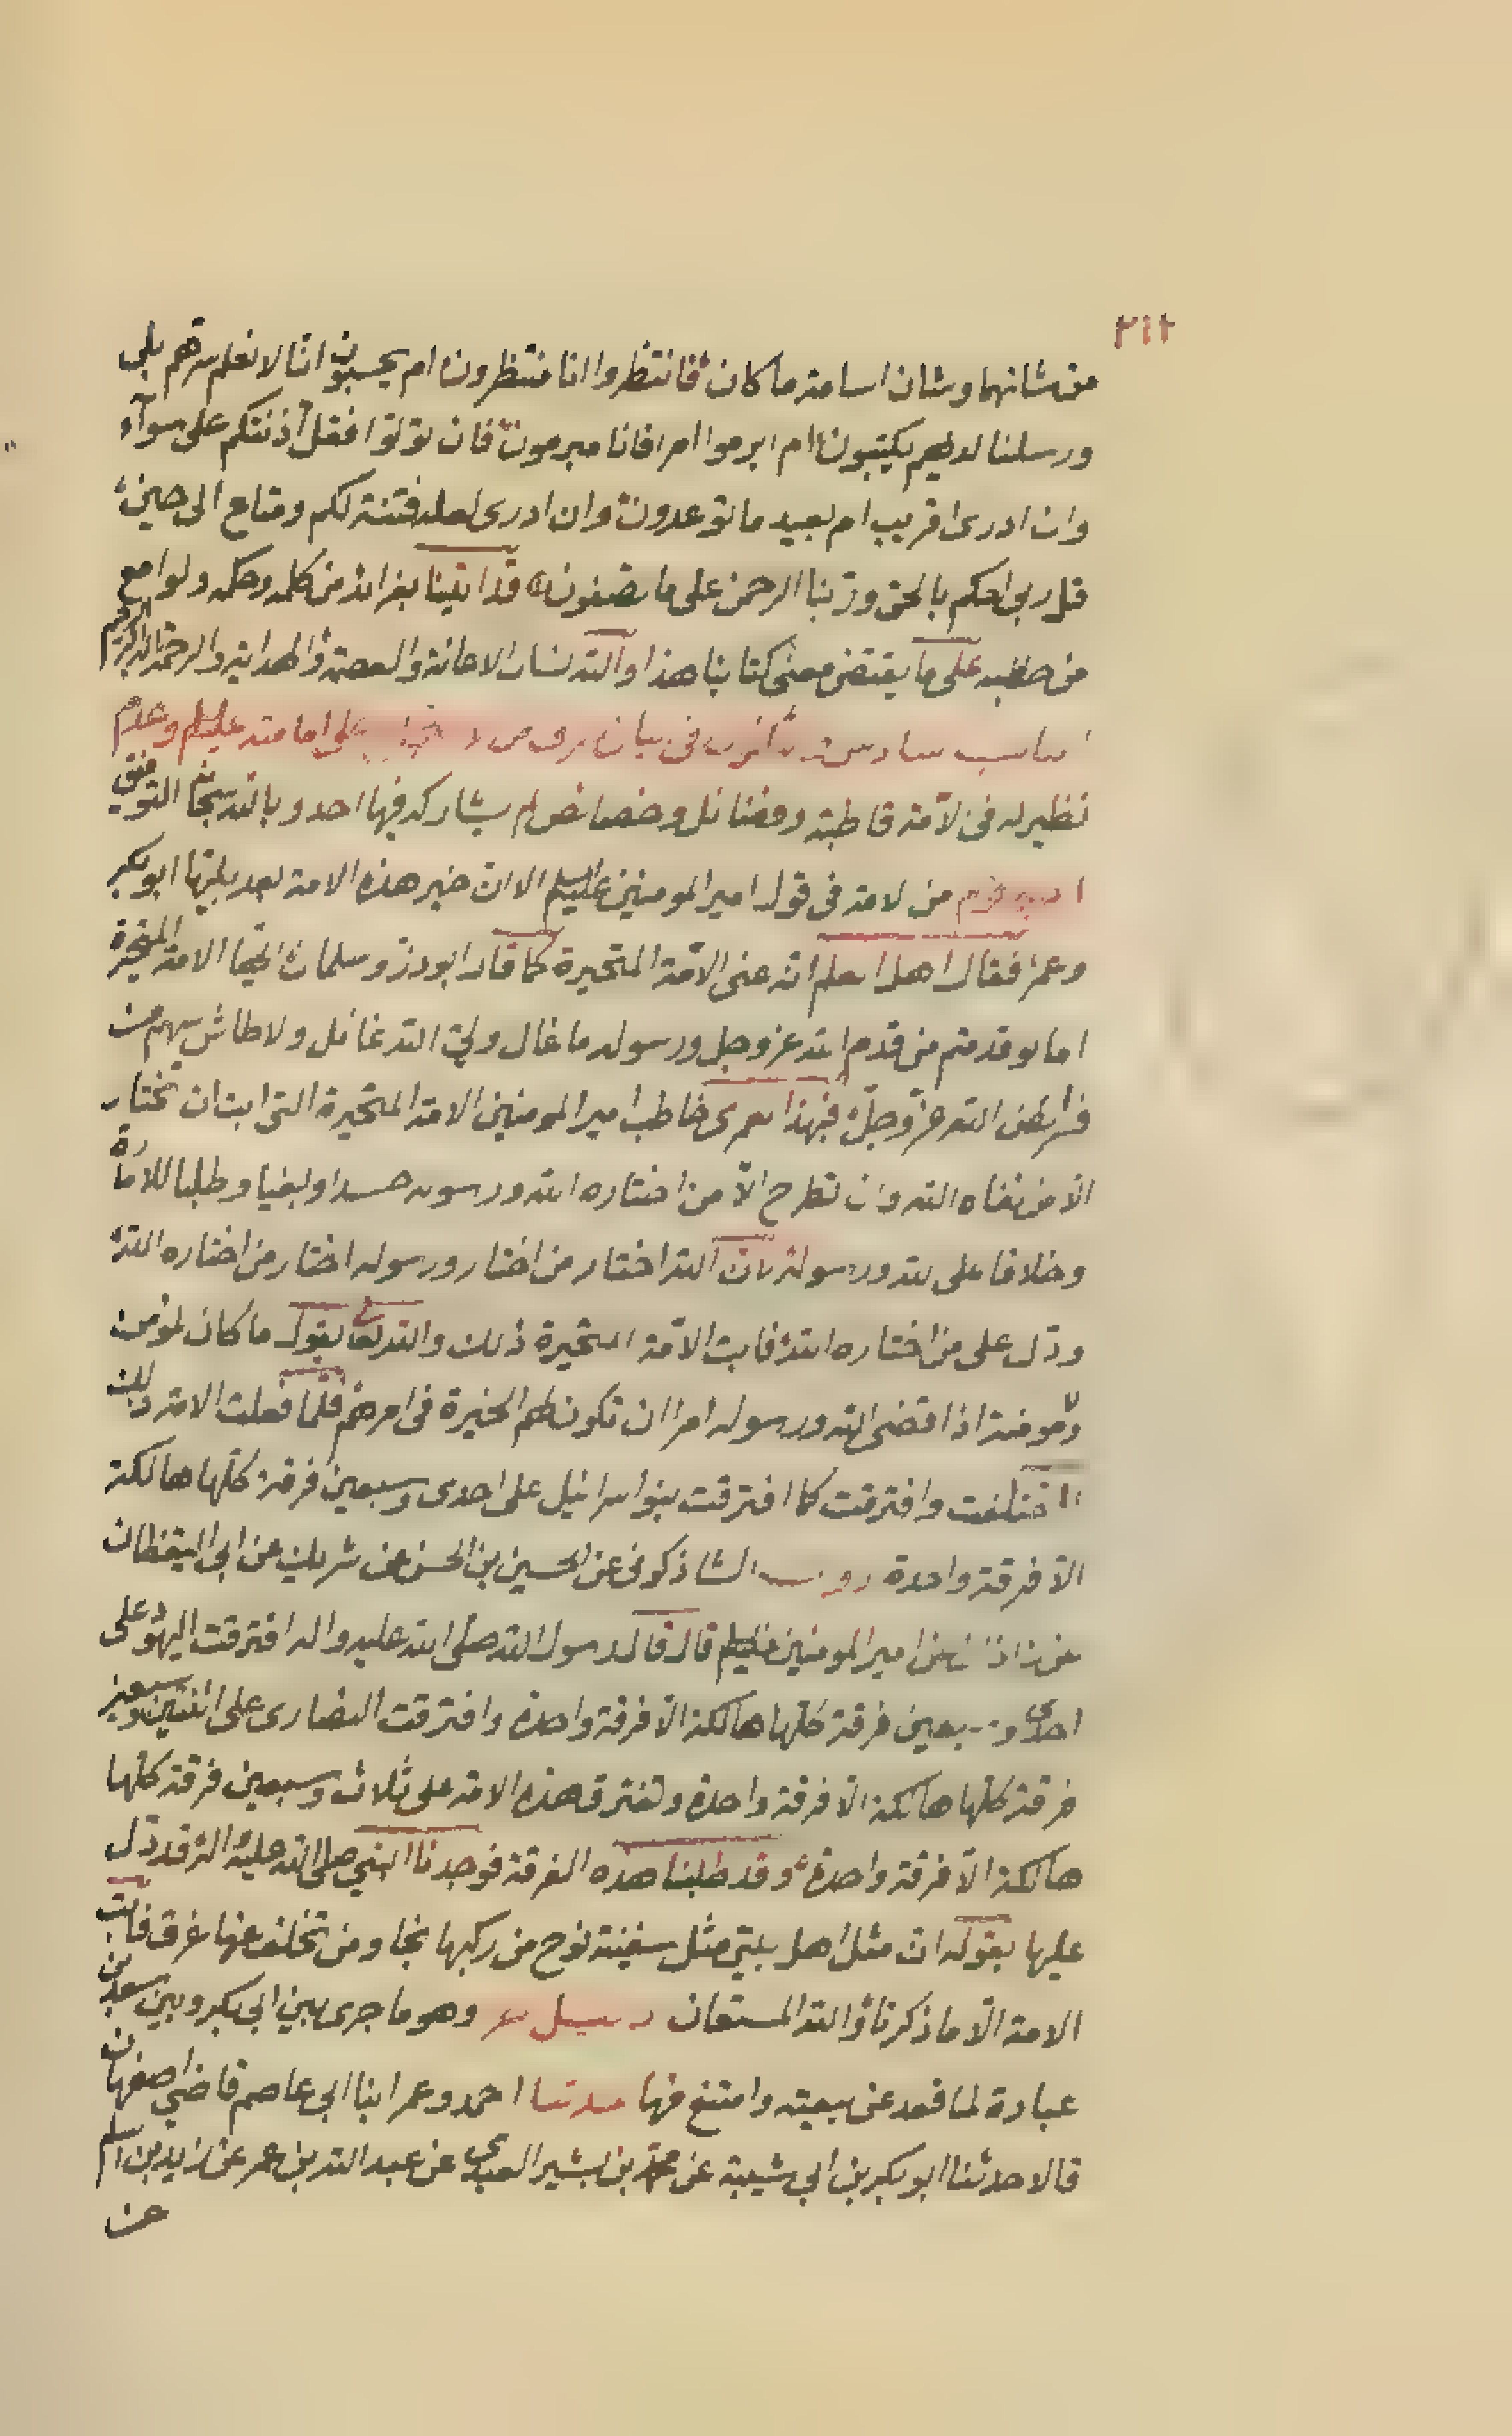 ٢١٢
من شانهما وشان اسامة ما كان فانتظروا انا منتظرون ام يحسبون انا لا نعلم سرهم بلى
ورسلنا لديهم يكتبون ام ابرموا امرا فانا مبرمون فان تولوا فقل آذنتكم على سوآء
وان ادرى اقريب ام بعيد ما توعدون وان ادرى لعله فتنة لكم ومتاع الى حين
قل ربى احكم بالحق وربنا الرحمن على ما يصفون قد اتينا بفرائد من كلمه وحكمه ولوامع
من خطبه على ما يقتضى معنى كتابنا هذا والله نسأل الاعانة والعصمة والهداية والرحمة انه اكرم الاكرمين
سادس فى بيان على امامته عليه السلم وعدم
نظير له فى الامة قاطبة وفضائل وخصائص لم يشاركه فيها احد وبالله سبحانه التوفيق
من الامة فى قول امير المومنين عليه السلم الا ان خير هذه الامة بعد نبيها ابو بكر
وعمر فقال اهل العلم انه عنى الامّة المتحيرة كما قال ابو ذر وسلمان ايتها الامة المتحيرة
اما لو قدمتم من قدم الله عز وجل ورسوله ما عال ولى الله عائل ولا طاش سهم من
فرايض الله عزّ وجلّ فبهذا لعمرى خاطب امير المومنين الامة المتحيرة التى ابت ان تختار
الا من نفاه الله وان تطرح الّا من اختاره الله ورسوله حسدا وبغيا وطلبا للامارة
وخلافا على الله ورسوله لان الله اختار من اختار ورسوله اختار من اختاره الله
ودّل على من اختاره الله فابت الامّة المتحيرة ذلك والله تعالى يقول ما كان لمؤمن
ولا مومنة اذا قضى الله ورسوله امرا ان تكون لهم الخيرة فى امرهم فلما فعلت الامة ذلك
اختلفت وافترقت كما افترقت بنو اسرائيل على احدى وسبعين فرقة كلّها هالكة
الّا فرقة واحدة روى الشاذكونى عن الحسين بن الحسن عن شريك عن ابى اليقظان
عن زاذان عن امير المومنين عليه السلم قال قال رسول الله صلى الله عليه واله افترقت اليهود على
احدى وسبعين فرقة كلّها هالكة الّا فرقة واحدة وافترقت النصارى على اثنتين وسبعين
فرقة كلّها هالكة الّا فرقة واحدة وتفترق هذه الامة على ثلاث وسبعين فرقة كلّها
هالكة الّا فرقة واحدة وقد طلبنا هذه الفرقة فوجدنا النبى صلى الله عليه واله قد دّل
عليها بقوله ان مثل اهل بيتى مثل سفينة نوح من ركبها نجا ومن تخلف عنها غرق فابت
الامة الّا ما ذكرنا والله المستعان وهو ما جرى بين ابى بكر وبين سعد بن
عبادة لما قعد عن بيعته وامتنع منها حدثنا احمد وعمر ابنا ابى عاصم قاضى اصفهان
قالا حدثنا ابو بكر بن ابى شيبة عن محمد بن بشير العبدى عن عبد الله بن عمر عن زيد بن اسلم
عن